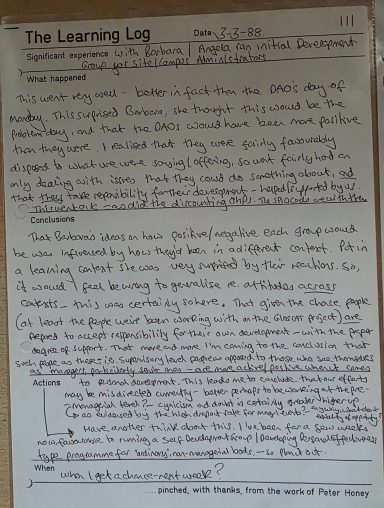 111
The Learning Log Date 3-3-88
Significant experience With Barbara / Angela ran initial Development
Group for Site/Campus Administrators
What happened
This went very well - better in fact than the DAOs day of
Monday. This surprised Barbara, she thought this would be the
problem day, and that the DAOs would have been more positive
than they were. I realised that they were fairly favourably
disposed to what we were saying/offering, so went fairly hard on
only dealing with issues that they could do something about, and
that they take responsibility for their development - helped/supported by us.
This went ok - as did the discounting
Conclusions
That Barbara's ideas on how positive/negative each group would
be was influenced by how they'd been in a different context. Put in
a learning context she was very surprised by their reactions. So,
it would I feel be wrong to generalise re. attitudes across
contexts - this was certainly so here. That given the choice people
(at least the people we've been working with on the project) are
prepared to accept responsibility for their own development - with the proper
degree of support. That more and more I'm coming to the conclusion that
such people as these i.e. Supervisory level as opposed to those who see themselves
as managers, particularly senior ones - are more active/positive when it comes
Actions to personal development. This leads me to conclude that our efforts
may be misdirected currently - better perhaps to be working at the pre-
managerial level / cynicism and doubt is certainly greater higher up
as evidenced by the high dropout rate for
Have another think about this. I've been for a few weeks
now, favourable to running a Self Development Group / Developing Personal Effectiveness
type programme for 'ordinary' non-managerial bods, - so flesh it out.
When
when I get a chance - next week?
....pinched, with thanks, from the work of Peter Honey